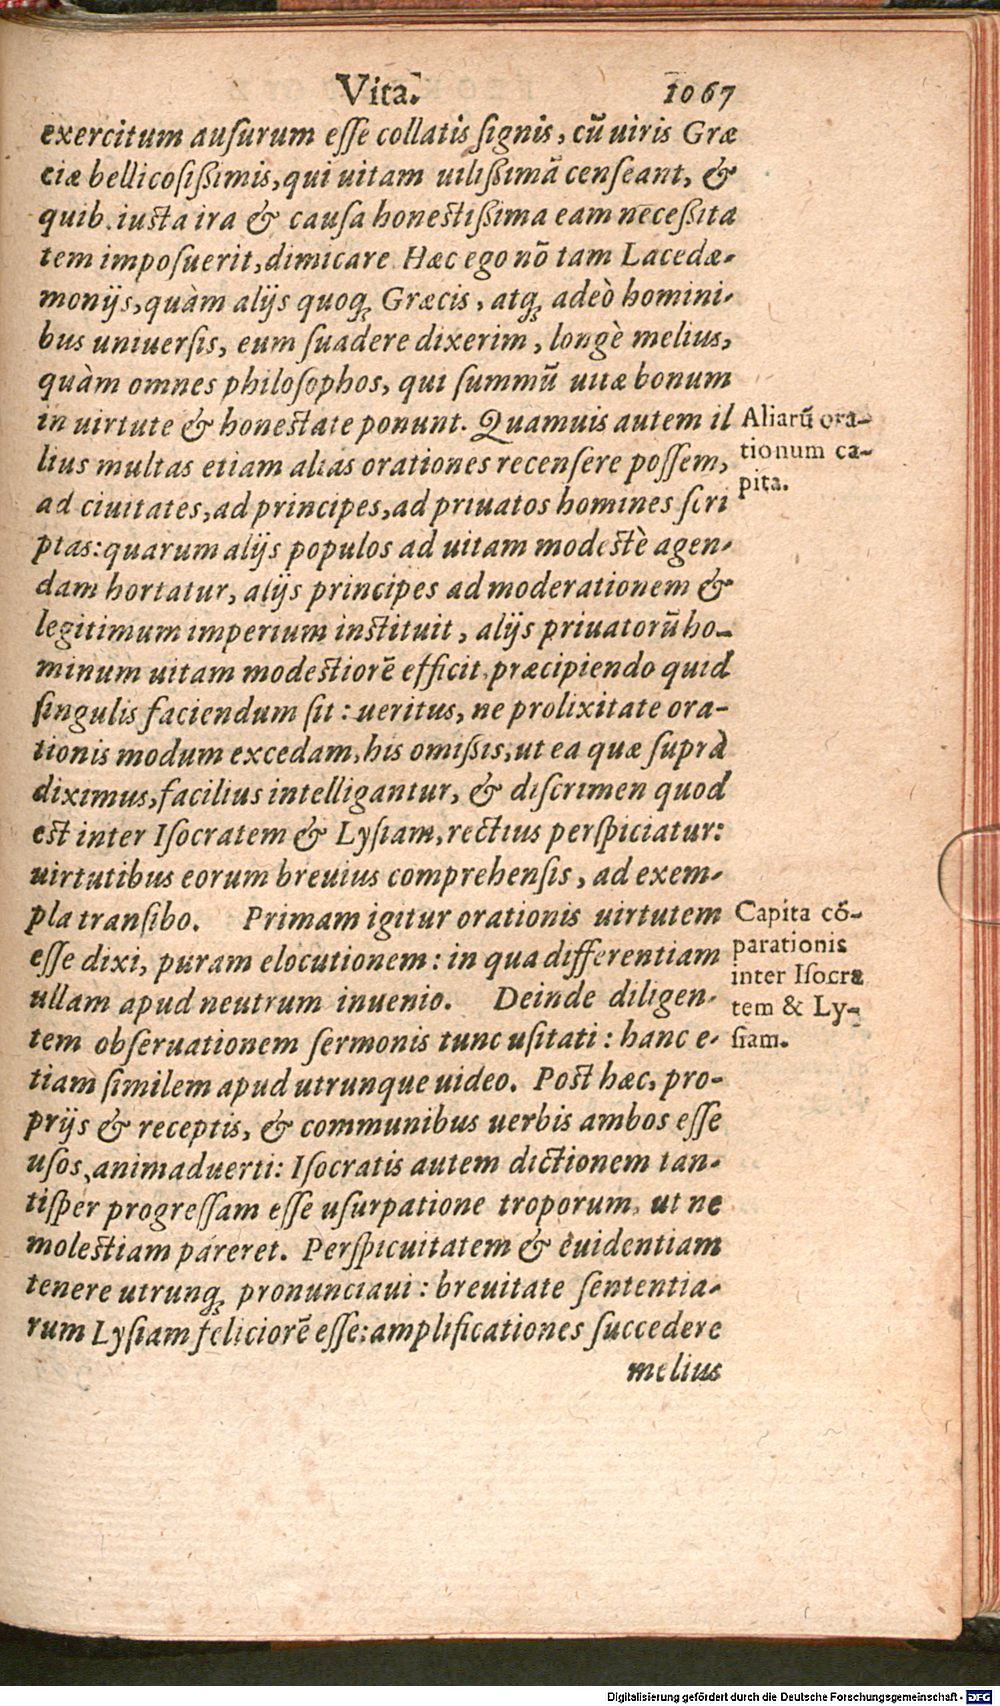 Vita. 1067
exercitum ausurum esse collatis signis, cū uiris Græ
ciæ bellicosißimis, qui uitam uilißimā censeant, &
quib. iusta ira & causa honestißima eam neceßita
tem imposuerit, dimicare. Hæc ego nō tam Lacedæ-
monijs, quàm alijs quoq; Græcis, atq; adeò homini-
bus uniuersis, eum suadere dixerim, longè melius,
quàm omnes philosophos, qui summū uitæ bonum
in uirtute & honestate ponunt. Quamuis autem il
lius multas etiam alias orationes recensere possem,
ad ciuitates, ad principes, ad priuatos homines scri
ptas: quarum alijs populos ad uitam modestè agen-
dam hortatur, alijs principes ad moderationem &
legitimum imperium instituit, alijs priuatorū ho-
minum uitam modestiorē efficit, præcipiendo quid
singulis faciendum sit: ueritus, ne prolixitate ora-
tionis modum excedam, his omißis, ut ea quæ suprà
diximus, facilius intelligantur, & discrimen quod
est inter Isocratem & Lysiam, rectius perspiciatur:
uirtutibus eorum breuius comprehensis, ad exem-
pla transibo. Primam igitur orationis uirtutem
esse dixi, puram elocutionem: in qua differentiam
ullam apud neutrum inuenio. Deinde diligen-
tem obseruationem sermonis tunc usitati: hanc e-
tiam similem apud utrunque uideo. Post hæc, pro-
prijs & receptis, & communibus uerbis ambos esse
usos, animaduerti: Isocratis autem dictionem tan-
tisper progressam esse usurpatione troporum, ut ne
molestiam pareret. Perspicuitatem & euidentiam
tenere utrunq; pronunciaui: breuitate sententia-
rum Lysiam feliciorē esse: amplificationes succedere
melius
Aliarū ora-
tionum ca-
pita.
Capita cō-
parationis
inter Isocra
tem & Ly-
siam.
Digitalisierung gefördert durch die Deutsche Forschungsgemeinschaft - DFG